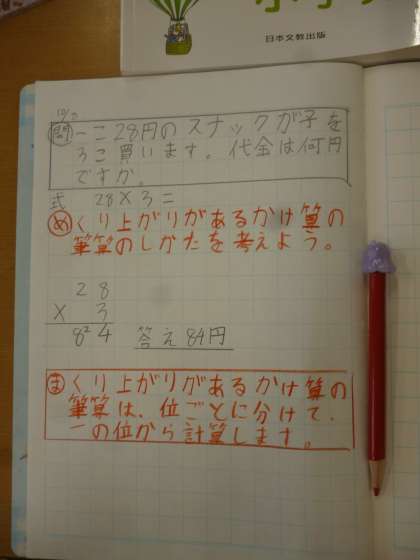 日本文教出版
問 一こ28円のスナックがଚ子を
3こ買います。代金は何円
ですか。
式 28×3=
め くり上がりがあるかけ算の
筆算のしかたを考えよう。
28
× 3
8²4 答え84円
ま くり上がりがあるかけ算の
筆算は、位ごとに分けて、
一の位から計算します。